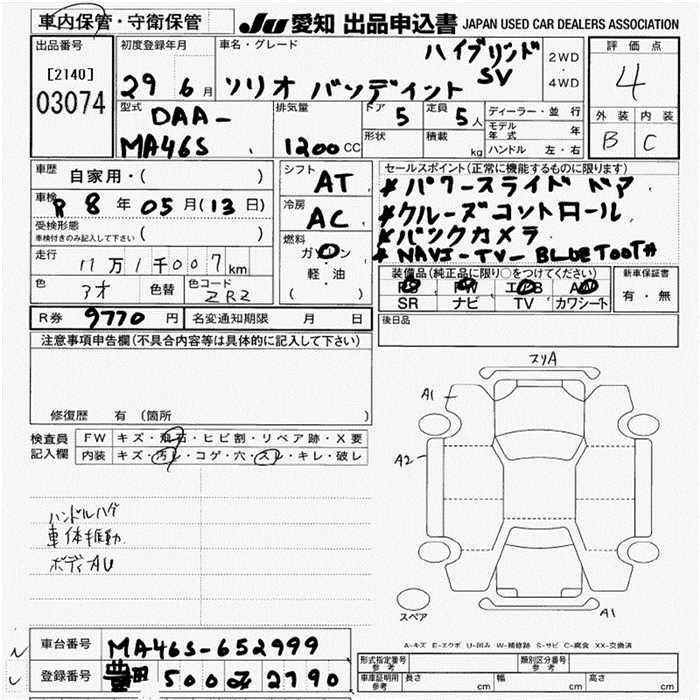 車内保管・守衛保管
JU 愛知 出品申込書 JAPAN USED CAR DEALERS ASSOCIATION
出品番号
[2140]
03074
初度登録年月
29 6 月
車名・グレード
ハイブリッド
SV
ソリオ バンディット
2WD
・
4WD
評価点
4
外装 内装
B C
型式
DAA-
MA46S
排気量
1200 CC
ドア 5
定員 5人
形状
積載 kg
ディーラー・並行
モデル年式 年
ハンドル 左・右
車歴 自家用・( )
車検 R 8 年 05 月 (13 日)
受検形態
車検付きのみ記入して下さい ( )
走行 11万1千007 km
色 アオ 色替 色コード ZR2
シフト AT
冷房 AC
燃料
ガソリン
軽・油
( )
セールスポイント(正常に機能するものに限ります)
*パワースライドドア
*クルーズコントロール
*バックカメラ
*NAVI-TV-BLUETOOTH
装備品(純正品に限り○をつけてください)
PS PW エアB AW
SR ナビ TV カワシート
新車保証書
有・無
R券 9770 円 名変通知期限 月 日
後日品
注意事項申告欄(不具合内容等は具体的に記入して下さい)
修復歴 有(箇所 )
検査員記入欄
FW キズ・飛石・ヒビ割・リペア跡・X要
内装 キズ・汚レ・コゲ・穴・スレ・キレ・破レ
ハンドルハゲ
車体振動
ボディAU
スリA
A1
A2
スペア
A1
A-キズ E-エクボ U-凹み W-補修跡 S-サビ C-腐食 XX-交換済
車台番号 MA46S-652999
登録番号 豊田 500 2790
形式指定番号 参考
類別区分番号 参考
車庫証明用 参考 長さ cm 幅 cm 高さ cm